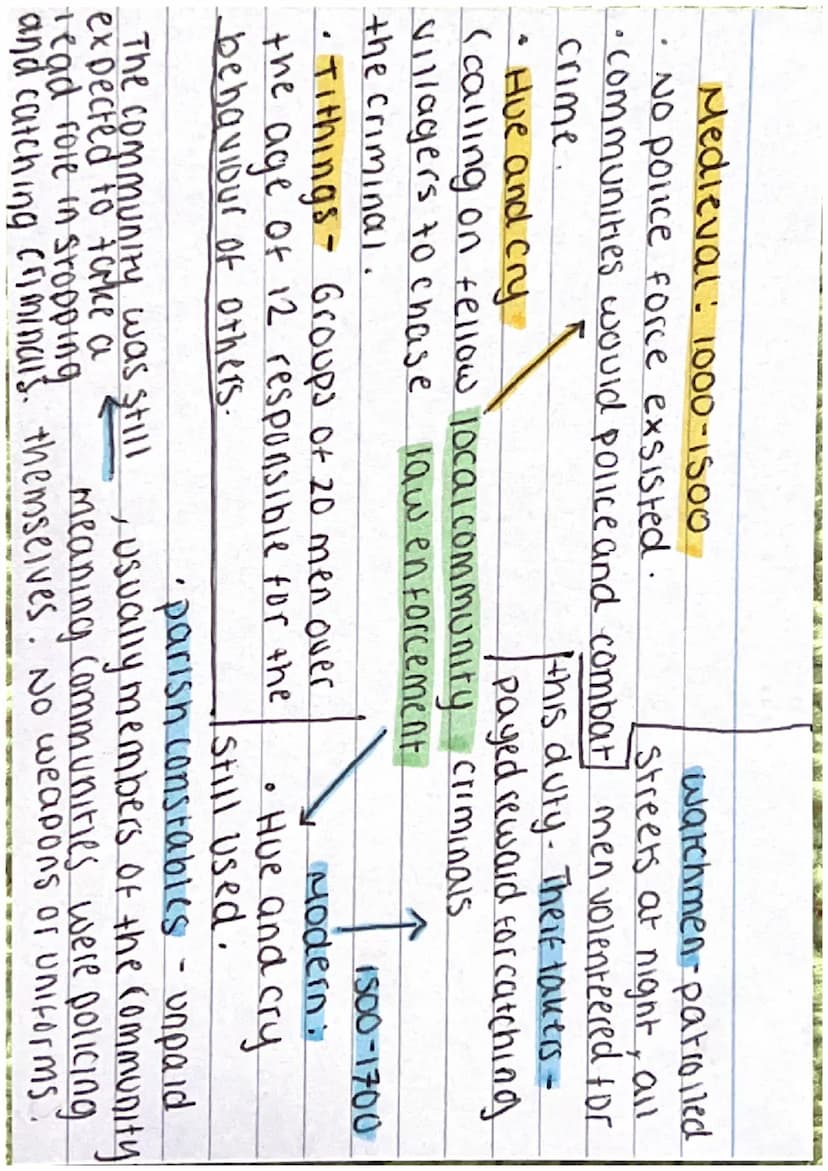 Medieval: 1000-1500
· No police force exsisted.
· communities would police and combat
crime.
· Hue and cry
(calling on fellow
villagers to chase
the criminal.
· Tithings - Groups of 20 men over
the age of 12 responsible for the
behaviour of others.
local community
law enforcement
watchmen - patrolled
streets at night, all
men volenteered for
this duty. Theif takers -
payed reward for catching
criminals
1500-1700
Modern:
· Hue and cry
still used.
· parish constables - unpaid
, usually members of the community
meaning communities were policing
themselves. No weapons or uniforms.
The community was still
expected to take a
lead role in stopping
and catching criminals.